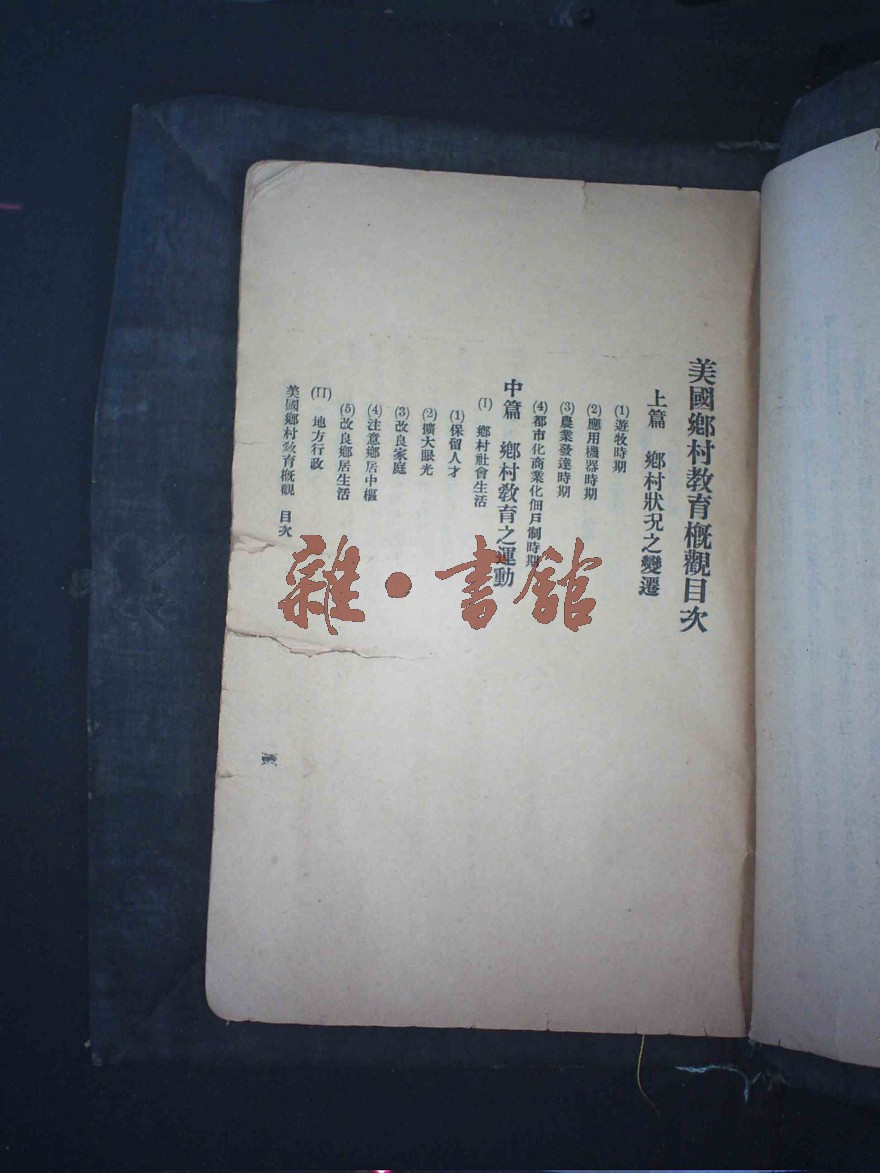 美國鄉村教育概觀目次
上篇　鄉村狀況之變遷
(1)遊牧時期
(2)應用機器時期
(3)農業發達時期
(4)都市化商業化佃戶制時期
中篇　鄉村教育之運動
(I)　鄉村社會生活
(1)保留人才
(2)擴大眼光
(3)改良家庭
(4)注意鄉居中樞
(5)改良鄉居生活
(II)　地方行政
美國鄉村教育概觀　目次
雜·書館